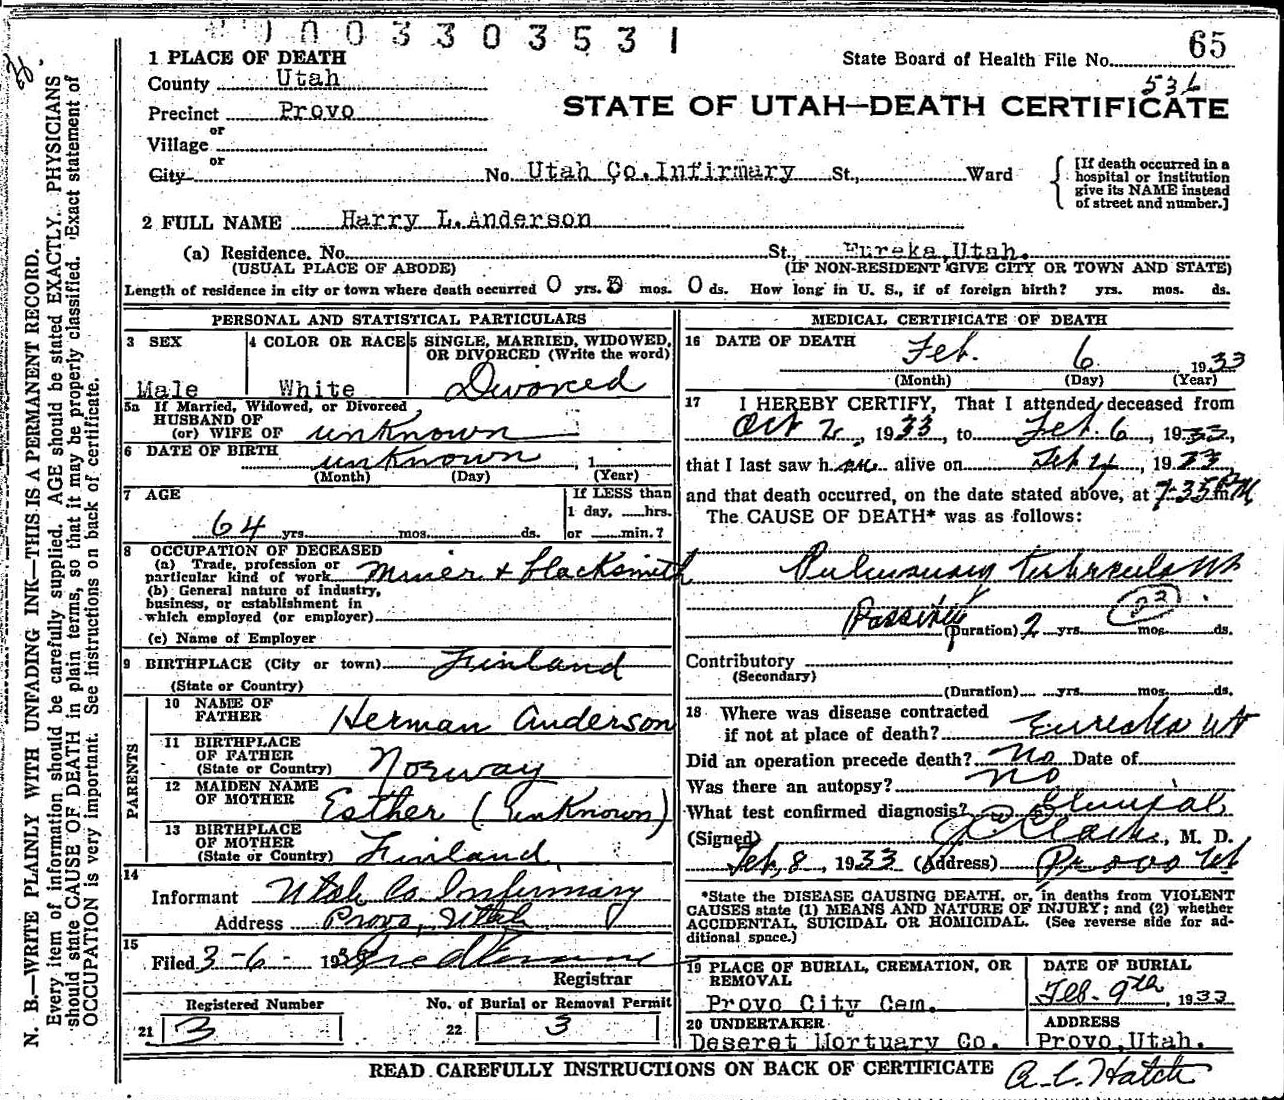 0 0 3 3 0 3 5 3 1
State Board of Health File No. 65
1 PLACE OF DEATH
County Utah
STATE OF UTAH—DEATH CERTIFICATE
Precinct Provo
or
Village
or
City No. Utah Co. Infirmary St., Ward
[If death occurred in a hospital or institution give its NAME instead of street and number.]
2 FULL NAME Harry L. Anderson
(a) Residence. No. St., Eureka, Utah.
(USUAL PLACE OF ABODE) (IF NON-RESIDENT GIVE CITY OR TOWN AND STATE)
Length of residence in city or town where death occurred 0 yrs. mos. 0 ds. How long in U. S., if of foreign birth? yrs. mos. ds.
PERSONAL AND STATISTICAL PARTICULARS
3 SEX
Male
4 COLOR OR RACE
White
5 SINGLE, MARRIED, WIDOWED, OR DIVORCED (Write the word)
Divorced
5a If Married, Widowed, or Divorced
HUSBAND OF
(or) WIFE OF unknown
6 DATE OF BIRTH unknown, 1
(Month) (Day) (Year)
7 AGE
64 yrs. mos. ds.
If LESS than
1 day, hrs.
or min.?
8 OCCUPATION OF DECEASED
(a) Trade, profession or
particular kind of work Miner & Blacksmith
(b) General nature of industry,
business, or establishment in
which employed (or employer)
(c) Name of Employer
9 BIRTHPLACE (City or town) Finland
(State or Country)
PARENTS
10 NAME OF
FATHER Herman Anderson
11 BIRTHPLACE
OF FATHER
(State or Country) Norway
12 MAIDEN NAME
OF MOTHER Esther (unknown)
13 BIRTHPLACE
OF MOTHER
(State or Country) Finland
14
Informant Utah Co. Infirmary
Address Provo, Utah
15
Filed 3-6- 19
Registrar
Registered Number
21 3
No. of Burial or Removal Permit
22 3
MEDICAL CERTIFICATE OF DEATH
16 DATE OF DEATH
Feb. 6 1933
(Month) (Day) (Year)
17 I HEREBY CERTIFY, That I attended deceased from
Oct 2, 1933, to Feb. 6, 1933,
that I last saw him alive on Feb 4, 1933
and that death occurred, on the date stated above, at 7-35 PM
The CAUSE OF DEATH* was as follows:
Pulmonary Tuberculosis
23
Possibly (Duration) 2 yrs. mos. ds.
Contributory
(Secondary)
(Duration) yrs. mos. ds.
18 Where was disease contracted
if not at place of death? Eureka Ut
Did an operation precede death? no Date of
Was there an autopsy? no
What test confirmed diagnosis? Clinical
(Signed) , M. D.
Feb, 8, 1933 (Address) Provo Ut
*State the DISEASE CAUSING DEATH, or, in deaths from VIOLENT
CAUSES state (1) MEANS AND NATURE OF INJURY; and (2) whether
ACCIDENTAL, SUICIDAL OR HOMICIDAL. (See reverse side for ad-
ditional space.)
19 PLACE OF BURIAL, CREMATION, OR
REMOVAL
Provo City Cem.
DATE OF BURIAL
Feb. 9th, 1933
20 UNDERTAKER
Deseret Mortuary Co.
ADDRESS
Provo, Utah.
READ CAREFULLY INSTRUCTIONS ON BACK OF CERTIFICATE
A. C. Hatch
N. B.—WRITE PLAINLY WITH UNFADING INK—THIS IS A PERMANENT RECORD.
Every item of information should be carefully supplied. AGE should be stated EXACTLY. PHYSICIANS
should state CAUSE OF DEATH in plain terms, so that it may be properly classified. Exact statement of
OCCUPATION is very important. See instructions on back of certificate.